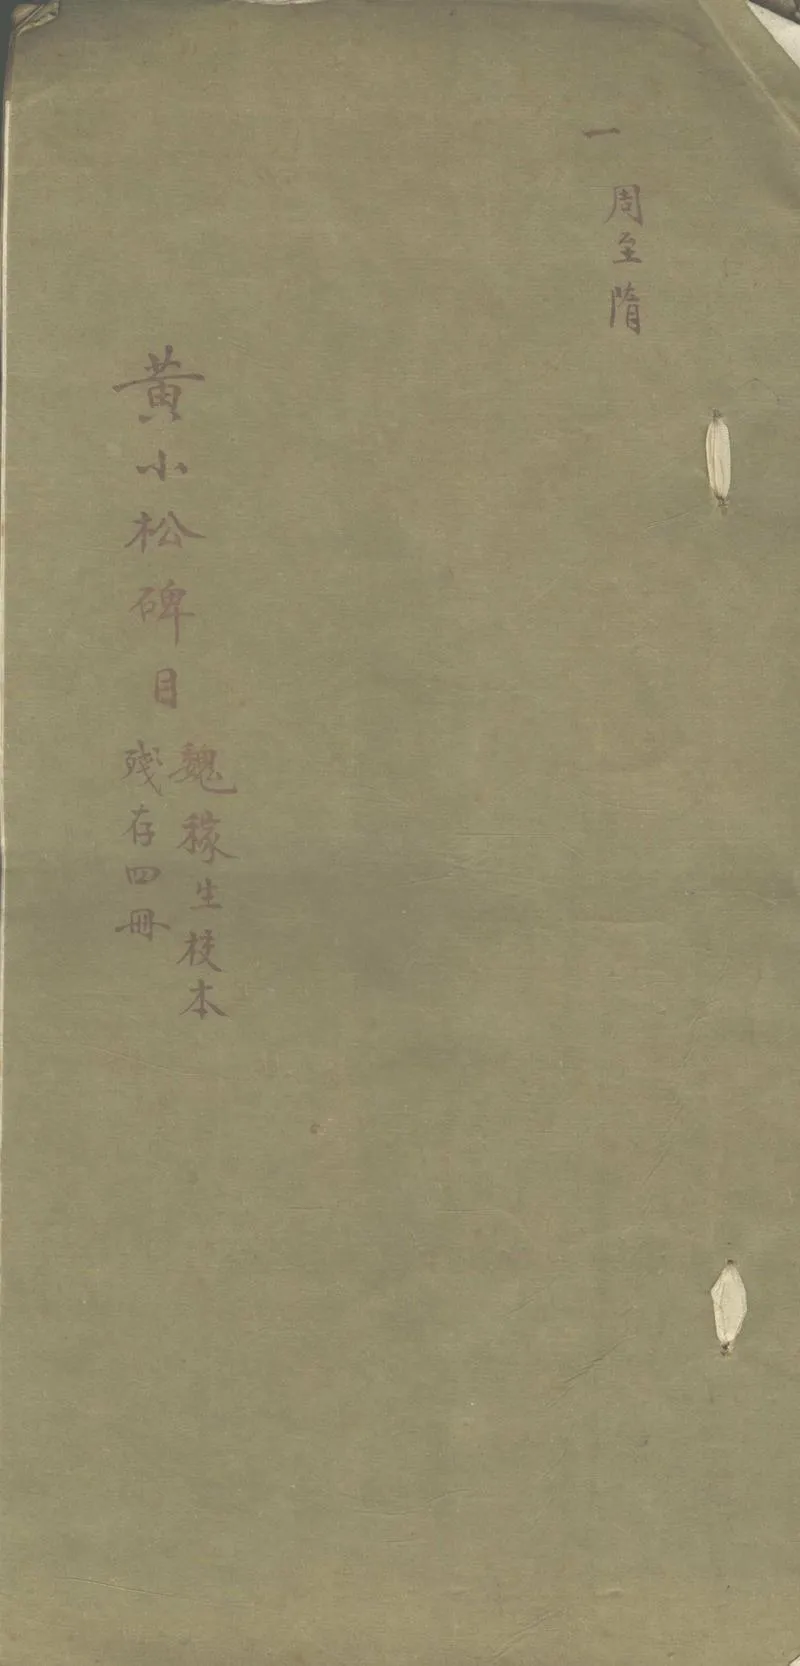 一
周至隋
黃小松碑目
魏稼生校本
殘存四冊